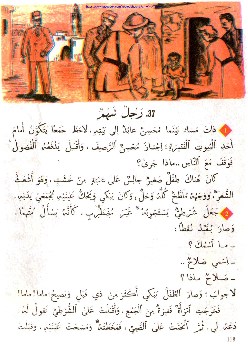 37. رَجُلٌ شَهْمٌ
1 ذاتَ مَساءٍ بَيْنَما مُحْسِنٌ عائِدٌ إلى بَيْتِهِ، لاحَظَ جَمْعًا يَتَكَوَّنُ أَمامَ
أَحَدِ الْبُيوتِ الْقَديمَةِ. اِجْتازَ مُحْسِنٌ الرَّصيفَ، وَأَقْبَلَ يَدْفَعُهُ الْفُضولُ
فَوَقَفَ مَعَ النّاسِ ..ماذا جَرى؟
كانَ هُناكَ طِفْلٌ صَغيرٌ جالِسٌ عَلى عَتَبَةٍ مِنْ خَشَبٍ، وَهُوَ أَشْعَثُ
الشَّعْرِ، وَوَجْهُهُ مُلَطَّخٌ كُلُّهُ وَحْلٌ، وَكانَ يَبْكي وَيَحُكُّ عَيْنَيْهِ بِجُمْعَيْ يَدَيْهِ.
2 جَعَلَ شُرْطِيٌّ يَسْتَجْوِبُهُ غَيْرَ مُضْطَرِبٍ، كَأَنَّهُ يَسْأَلُ مُتَّهَمًا.
وَصارَ يُعيدُ
ـ ما اسْمُكَ؟
ـ اِسْمي صَلاحٌ..
ـ صَلاحٌ ماذا؟
لا جَوابَ. وَصارَ الطِّفْلُ يَبْكي أَكْثَرَ مِنْ ذي قَبْلُ وَيَصيحُ ماما! ماما!
فَخَرَجَتِ امْرَأَةٌ فَقيرَةٌ مِنَ الْجَمْعِ، وَأَقْبَلَتْ عَلى الشُّرْطِيِّ تَقولُ لَهُ
دَعْهُ لي. ثُمَّ انْحَنَتْ عَلى الصَّبِيِّ، وَمَسَحَتْ عَيْنَيْهِ،
118